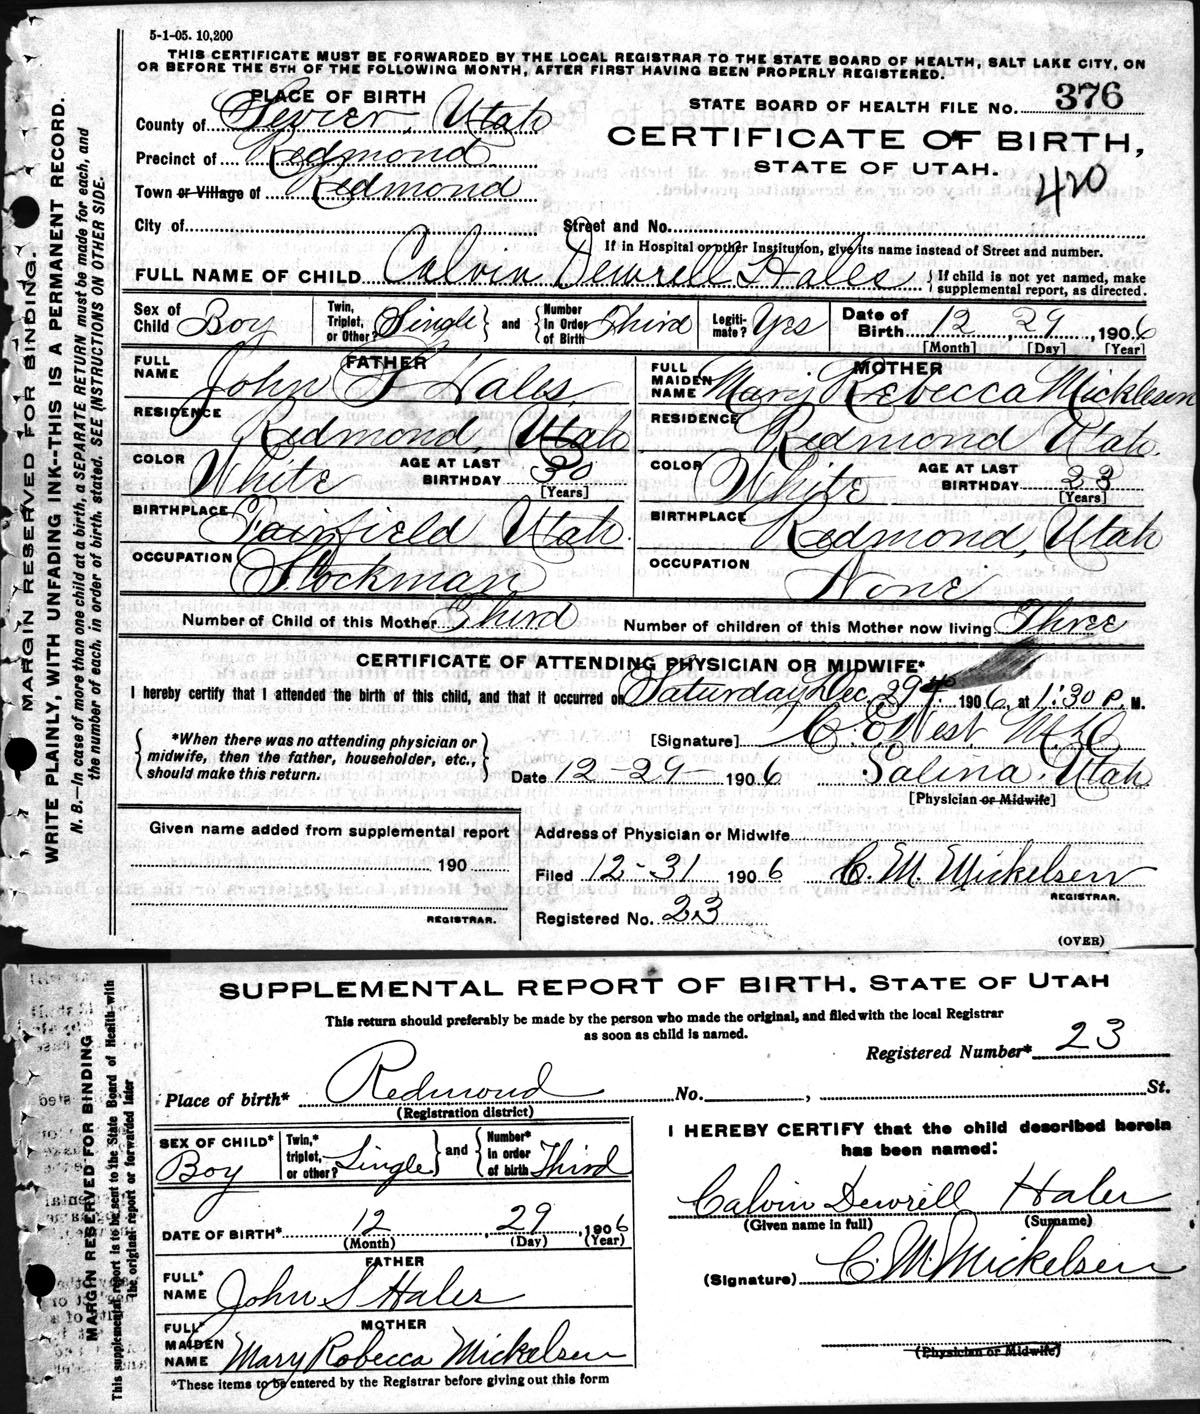 5-1-05. 10,200
THIS CERTIFICATE MUST BE FORWARDED BY THE LOCAL REGISTRAR TO THE STATE BOARD OF HEALTH, SALT LAKE CITY, ON
OR BEFORE THE 5TH OF THE FOLLOWING MONTH, AFTER FIRST HAVING BEEN PROPERLY REGISTERED.
PLACE OF BIRTH
STATE BOARD OF HEALTH FILE NO. 376
County of Sevier, Utah
CERTIFICATE OF BIRTH,
Precinct of Redmond
STATE OF UTAH.
Town or Village of Redmond
420
City of Street and No.
If in Hospital or other Institution, give its name instead of Street and number.
FULL NAME OF CHILD Calvin Dewrell Hales { If child is not yet named, make supplemental report, as directed.
Sex of Child Boy Twin, Triplet, or Other? Single } and { Number In Order of Birth Third Legiti-mate? Yes Date of Birth 12 29, 1906
[Month] [Day] [Year]
FATHER MOTHER
FULL NAME John S Hales, FULL MAIDEN NAME Mary Rebecca Micklesen
RESIDENCE Redmond, Utah RESIDENCE Redmond Utah.
COLOR White AGE AT LAST BIRTHDAY 30 [Years] COLOR White AGE AT LAST BIRTHDAY 23 [Years]
BIRTHPLACE Fairfield Utah. BIRTHPLACE Redmond, Utah
OCCUPATION Stockman OCCUPATION None
Number of Child of this Mother Third Number of children of this Mother now living Three
CERTIFICATE OF ATTENDING PHYSICIAN OR MIDWIFE*
I hereby certify that I attended the birth of this child, and that it occurred on Saturday Dec. 29th 1906, at 1:30 P. M.
{ *When there was no attending physician or midwife, then the father, householder, etc., should make this return. }
[Signature] C. E. West M.D.
Date 12-29- 1906 Salina, Utah
[Physician or Midwife]
Given name added from supplemental report
190
REGISTRAR.
Address of Physician or Midwife
Filed 12-31 1906 C. M. Mickelsen
REGISTRAR.
Registered No. 23
(OVER)
MARGIN RESERVED FOR BINDING.
WRITE PLAINLY, WITH UNFADING INK--THIS IS A PERMANENT RECORD.
N. B.--In case of more than one child at a birth, a SEPARATE RETURN must be made for each, and
the number of each, in order of birth, stated. SEE INSTRUCTIONS ON OTHER SIDE.
SUPPLEMENTAL REPORT OF BIRTH, STATE OF UTAH
This return should preferably be made by the person who made the original, and filed with the local Registrar
as soon as child is named.
Registered Number* 23
Place of birth* Redmond No. , St.
(Registration district)
SEX OF CHILD* Boy Twin,* triplet, or other? Single } and { Number* in order of birth Third
I HEREBY CERTIFY that the child described herein
has been named:
Calvin Dewrill Hales
(Given name in full) (Surname)
DATE OF BIRTH* 12, 29, 1906
(Month) (Day) (Year)
FATHER
FULL* NAME John S Hales
(Signature) C. M. Mickelsen
MOTHER
FULL* MAIDEN NAME Mary Robecca Mickelsen
(Physician or Midwife)
*These items to be entered by the Registrar before giving out this form
MARGIN RESERVED FOR BINDING
This supplemental report is to be sent to the State Board of Health with
the original report or forwarded later